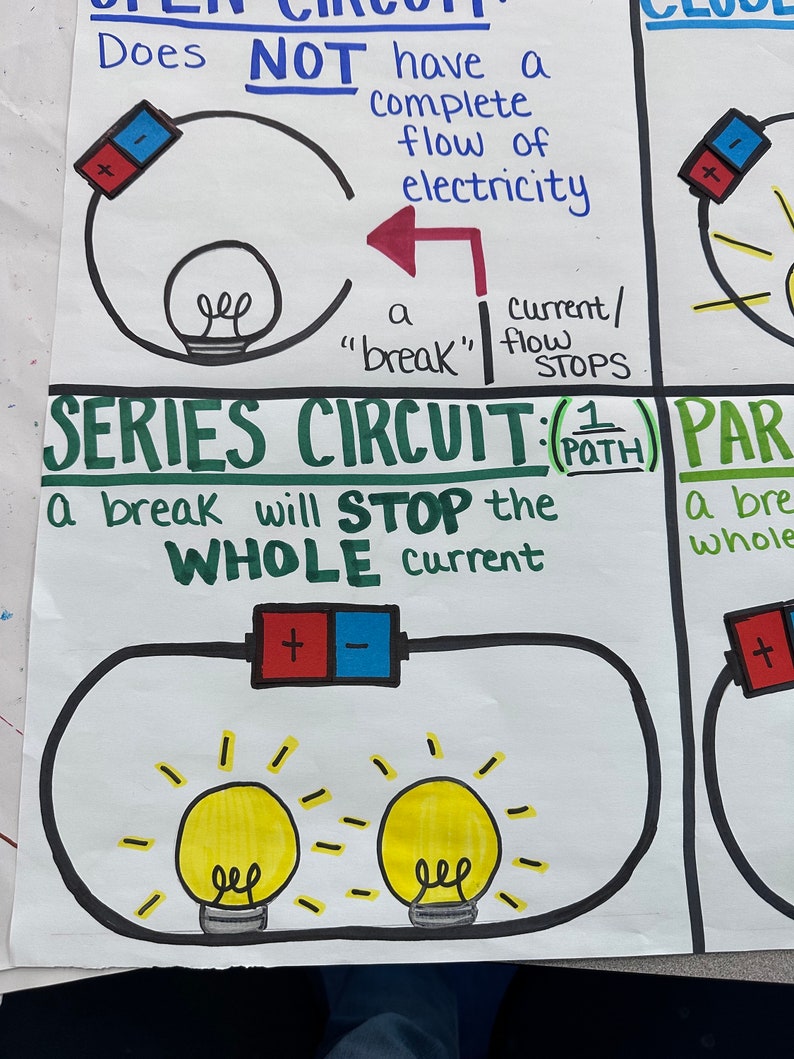 OPEN CIRCUIT:
Does NOT have a
complete
flow of
electricity
+ -
a
"break"
current/
flow
STOPS
+ -
SERIES CIRCUIT: (1
PATH)
a break will STOP the
WHOLE current
+ -
PAR
a bre
whole
+